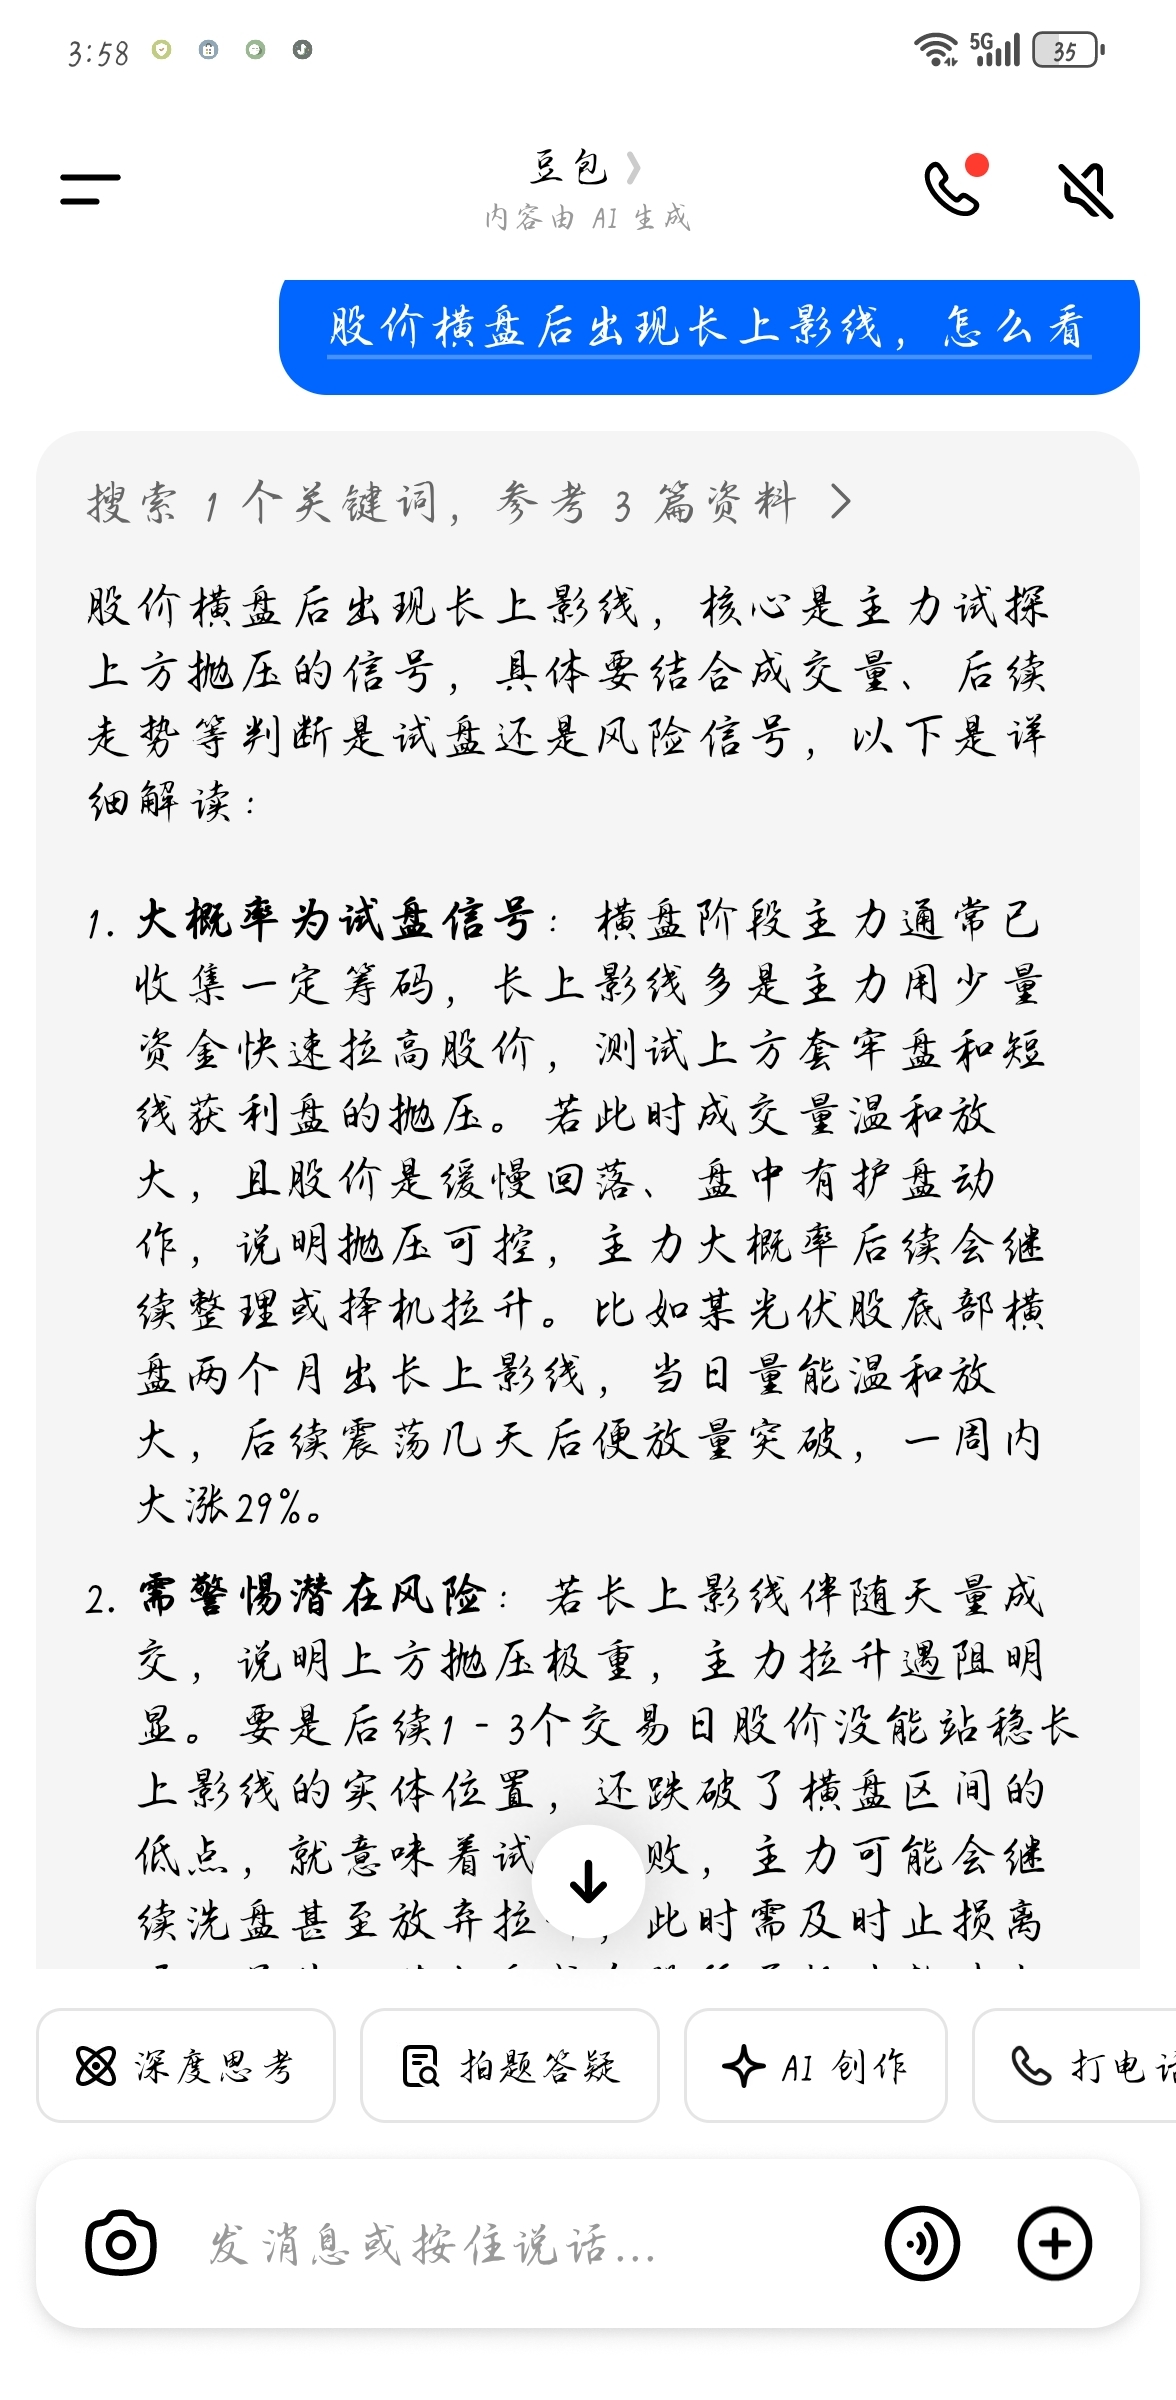 3:58
5G
35
豆包
内容由 AI 生成
股价横盘后出现长上影线，怎么看
搜索 1 个关键词，参考 3 篇资料
股价横盘后出现长上影线，核心是主力试探
上方抛压的信号，具体要结合成交量、后续
走势等判断是试盘还是风险信号，以下是详
细解读：
1. 大概率为试盘信号：横盘阶段主力通常已
收集一定筹码，长上影线多是主力用少量
资金快速拉高股价，测试上方套牢盘和短
线获利盘的抛压。若此时成交量温和放
大，且股价是缓慢回落、盘中有护盘动
作，说明抛压可控，主力大概率后续会继
续整理或择机拉升。比如某光伏股底部横
盘两个月出长上影线，当日量能温和放
大，后续震荡几天后便放量突破，一周内
大涨29%。
2. 需警惕潜在风险：若长上影线伴随天量成
交，说明上方抛压极重，主力拉升遇阻明
显。要是后续1 - 3个交易日股价没能站稳长
上影线的实体位置，还跌破了横盘区间的
低点，就意味着试 败，主力可能会继
续洗盘甚至放弃拉 ，此时需及时止损离
深度思考
拍题答疑
AI 创作
打电话
发消息或按住说话...